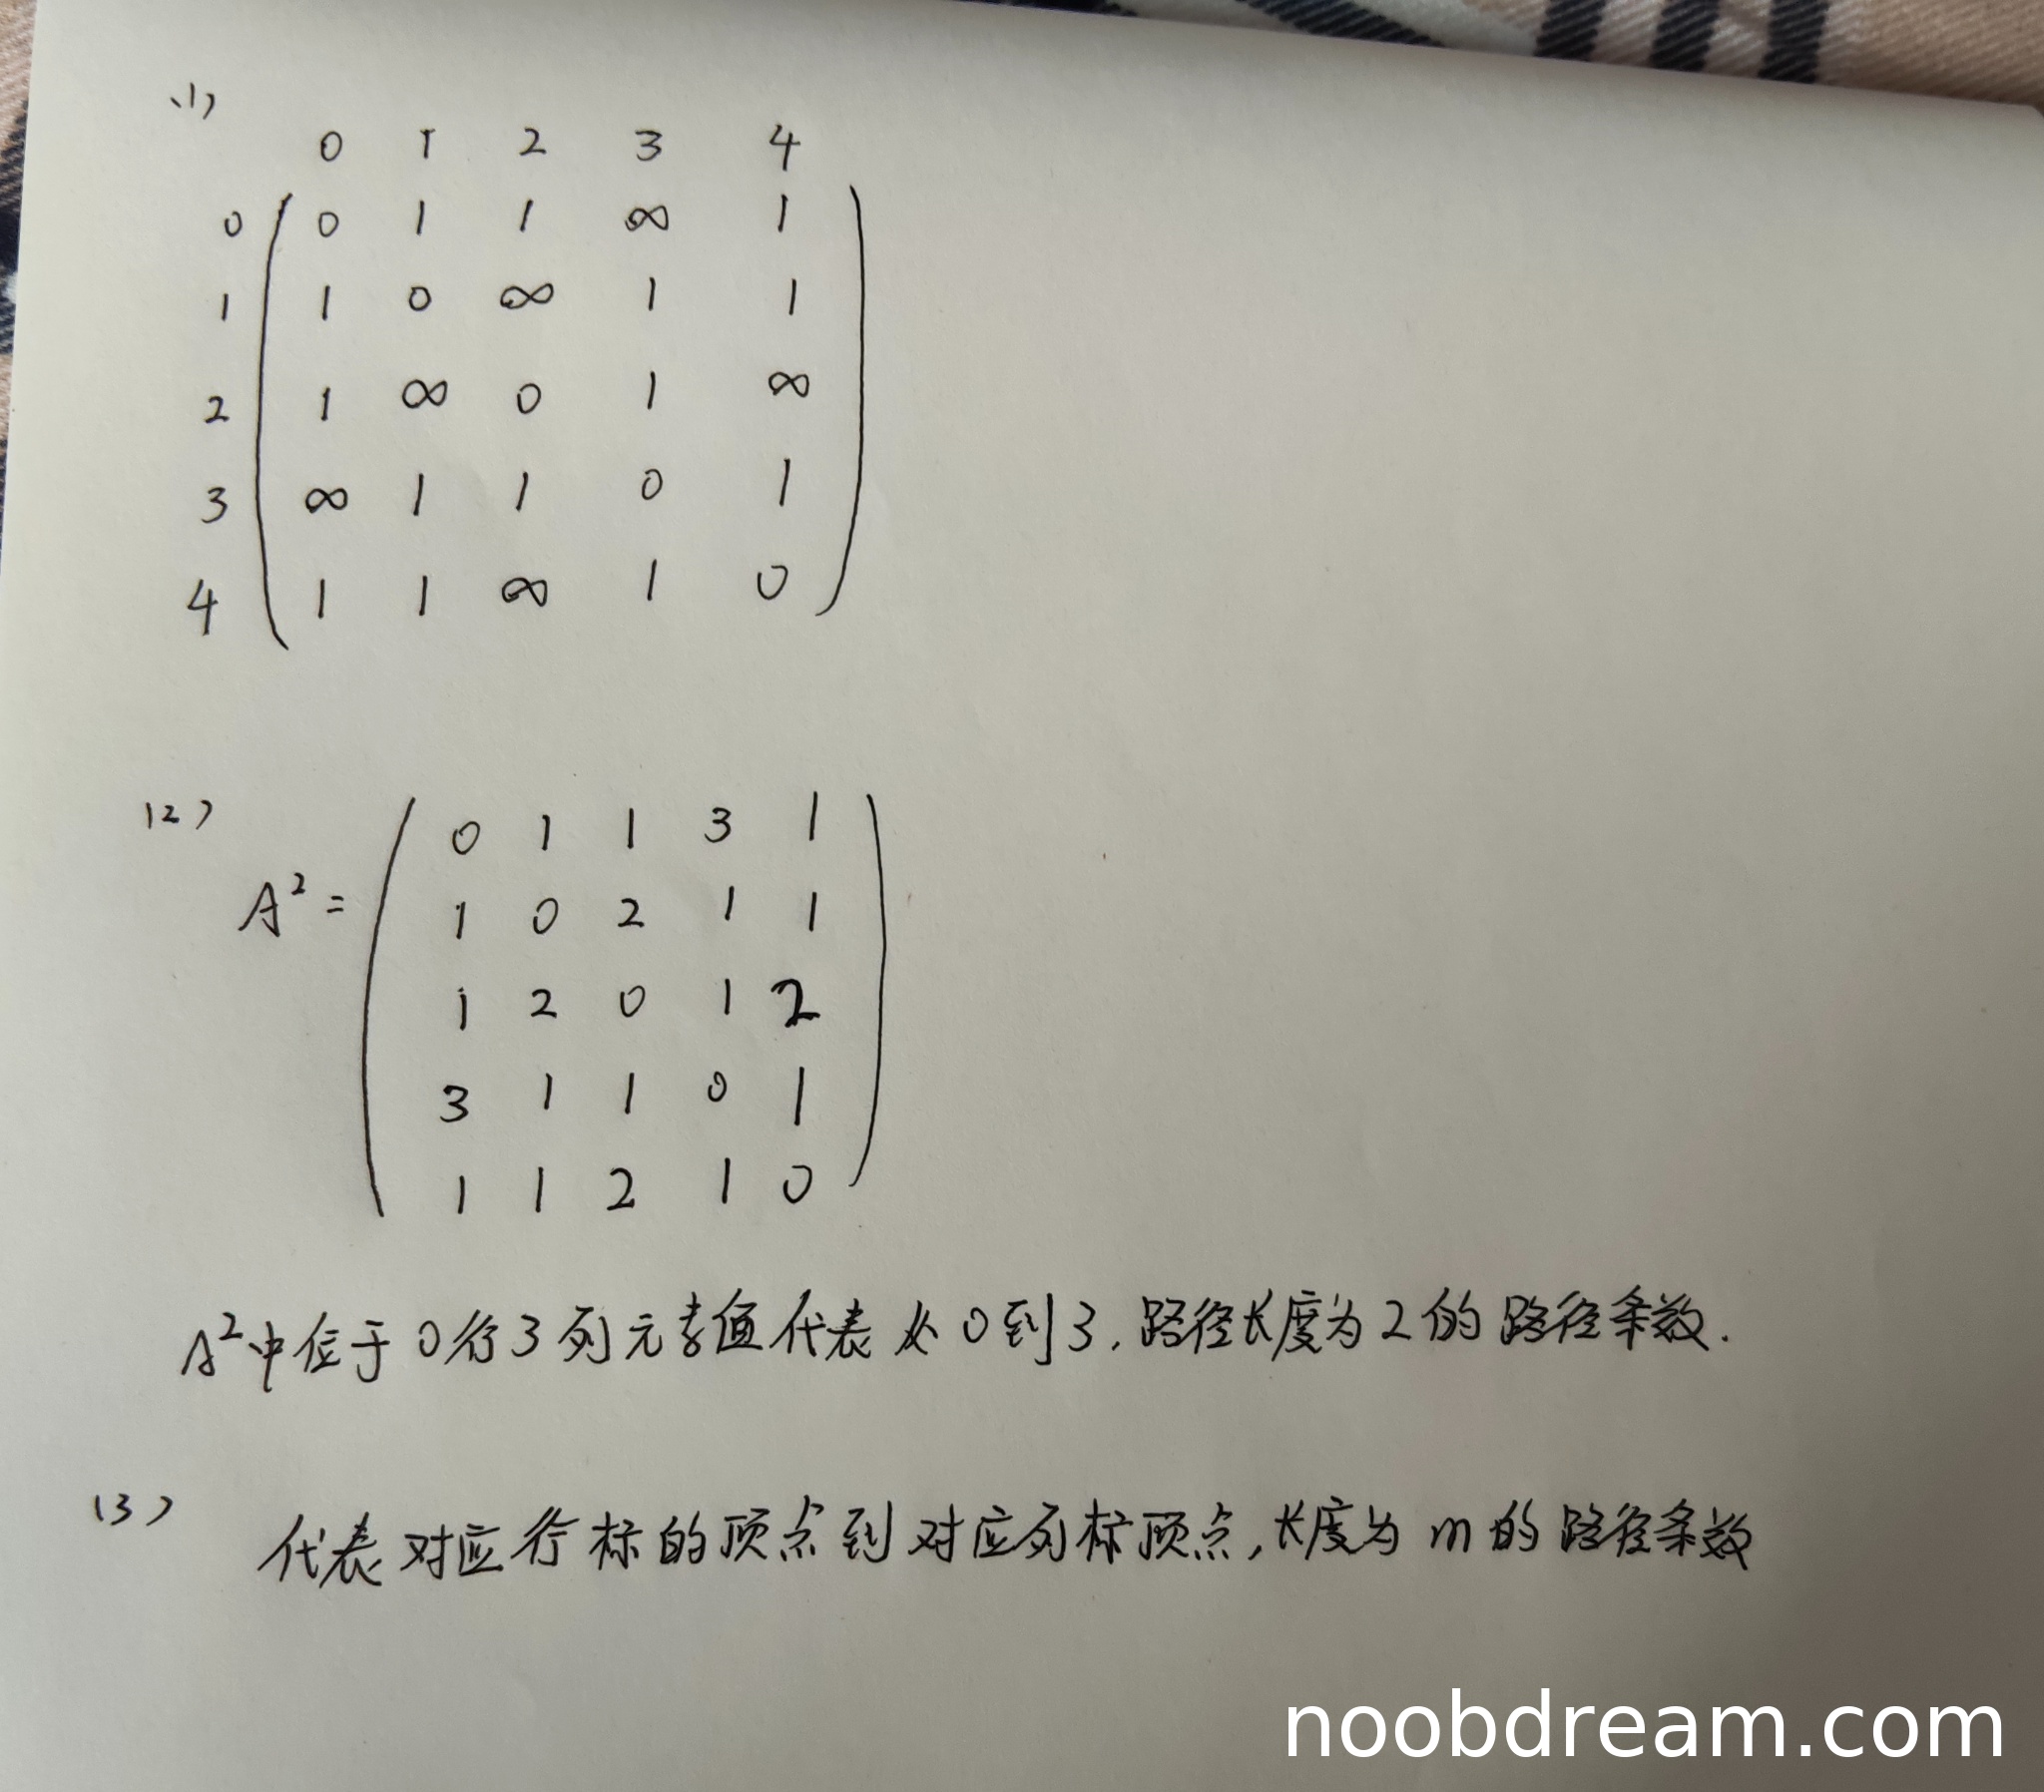 (1)
0 1 2 3 4
0 0 1 1 ∞ 1
1 1 0 ∞ 1 1
2 1 ∞ 0 1 ∞
3 ∞ 1 1 0 1
4 1 1 ∞ 1 0
(2)
A² =
0 1 1 3 1
1 0 2 1 1
1 2 0 1 2
3 1 1 0 1
1 1 2 1 0
A²中位于0行3列元素值代表从0到3,路径长度为2的路径条数.
(3) 代表对应行标的顶点到对应列标顶点,长度为m的路径条数
noobdream.com